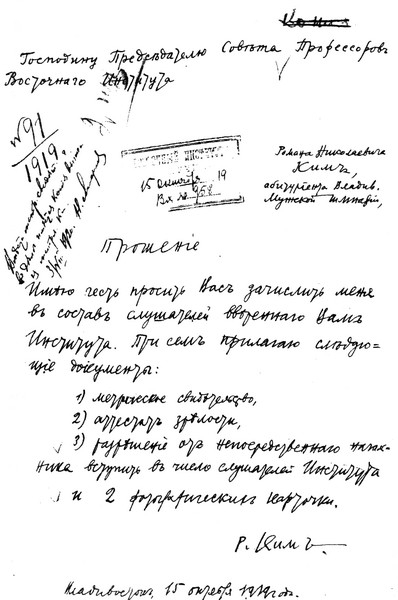 Копия
Господину Председателю Совѣта Профессоровъ
Восточнаго Института
№ 91
1919
Романа Николаевича
Кимъ,
абитуріента Владив.
Мужской Гимназіи,
ВОСТОЧНЫЙ ИНСТИТУТЪ
15 октября 19
Вх. № 958
Прошеніе
Имѣю честь просить Васъ зачислить меня
въ составъ слушателей ввѣреннаго Вамъ
Института. При семъ прилагаю слѣдую=
щіе документы:
1) метрическое свидѣтельство,
2) аттестатъ зрѣлости,
3) разрѣшеніе отъ непосредственнаго началь-
ника вступить въ число слушателей Института
и 2 фотографическихъ карточки.
Р. Кимъ
Владивостокъ, 15 октября 1919 года.